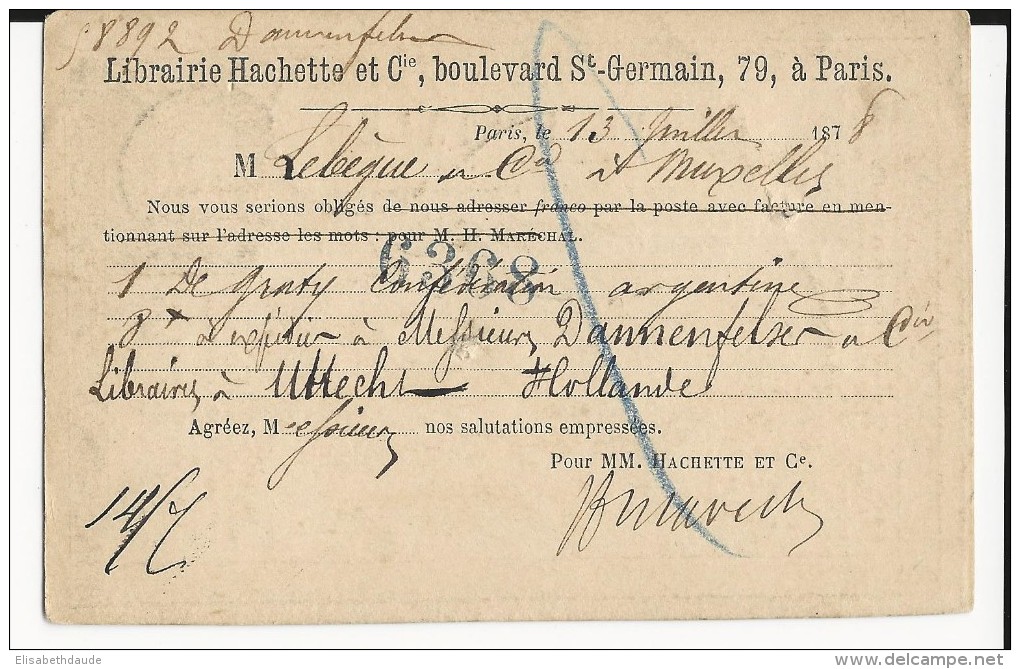 58892 Dannenfelser
Librairie Hachette et Cie, boulevard St-Germain, 79, à Paris.
Paris, le 13 Juillet 1878
M Lebègue et Cie à Bruxelles
Nous vous serions obligés de nous adresser franco par la poste avec facture en men-
tionnant sur l'adresse les mots : pour M. H. Maréchal.
6368
1 De Graty Confédération argentine
à expédier à Messieurs Dannenfelser et Cie
Libraires à Uttecht Hollande
Agréez, Messieurs nos salutations empressées.
Pour MM. Hachette et Ce.
14/7
Elisabethdaude
www.delcampe.net